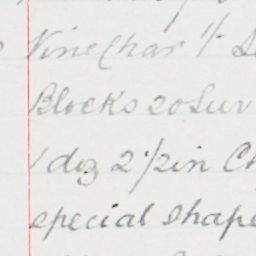 Vine Char 1/-
Blocks 20 Sur
1 doz 2 1/2 in Ch
special shape